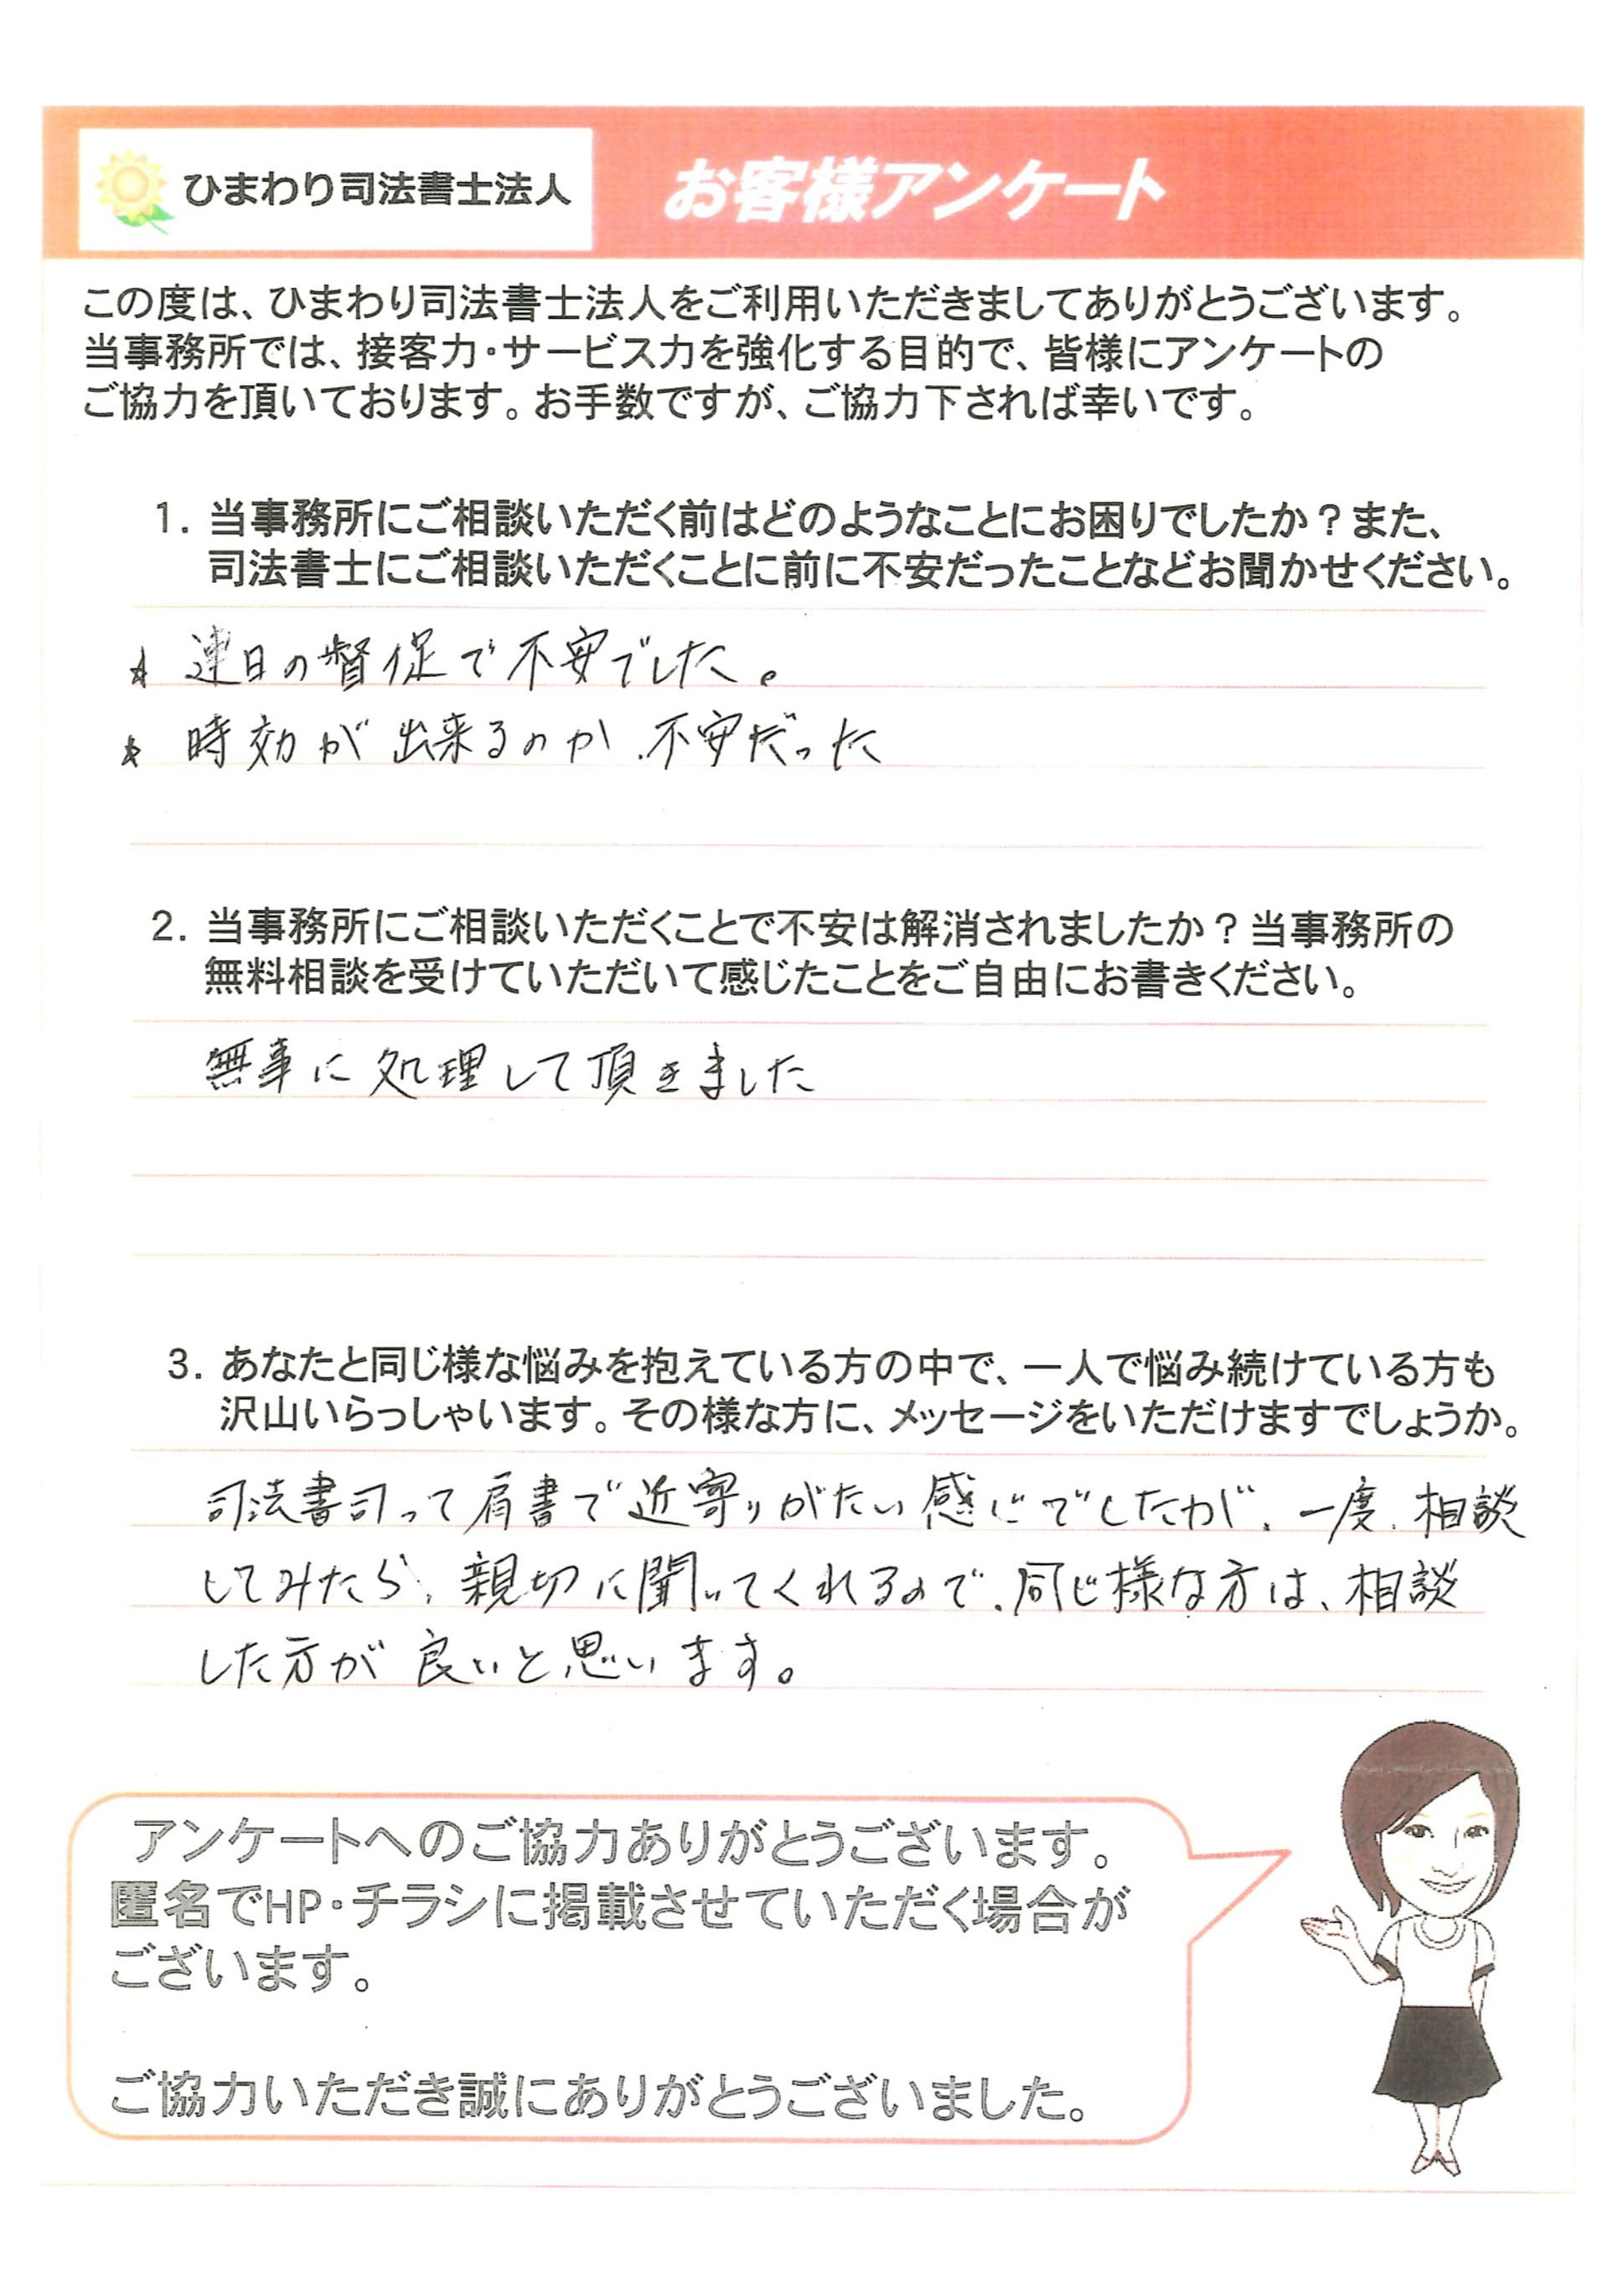 ひまわり司法書士法人
お客様アンケート
この度は、ひまわり司法書士法人をご利用いただきましてありがとうございます。
当事務所では、接客力・サービス力を強化する目的で、皆様にアンケートの
ご協力を頂いております。お手数ですが、ご協力下されば幸いです。
1. 当事務所にご相談いただく前はどのようなことにお困りでしたか？また、
司法書士にご相談いただくことに前に不安だったことなどお聞かせください。
☆ 連日の督促で不安でした。
☆ 時効が出来るのか、不安だった
2. 当事務所にご相談いただくことで不安は解消されましたか？当事務所の
無料相談を受けていただいて感じたことをご自由にお書きください。
無事に処理して頂きました
3. あなたと同じ様な悩みを抱えている方の中で、一人で悩み続けている方も
沢山いらっしゃいます。その様な方に、メッセージをいただけますでしょうか。
司法書司って肩書で近寄りがたい感じでしたが、一度、相談
してみたら、親切に聞いてくれるので、同じ様な方は、相談
した方が良いと思います。
アンケートへのご協力ありがとうございます。
匿名でHP・チラシに掲載させていただく場合が
ございます。
ご協力いただき誠にありがとうございました。